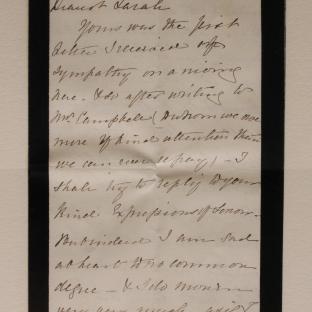 Dearest Sarah
Yours was the first
letter I received of
sympathy on arriving
here. & so after writing to
Mrs Campbell to whom we owe
more of kind attention than
we can ever repay, I
shall try to reply to your
kind Expressions of Sorrow.
But indeed I am sad
at heart to no common
degree - & I do mourn
very very much